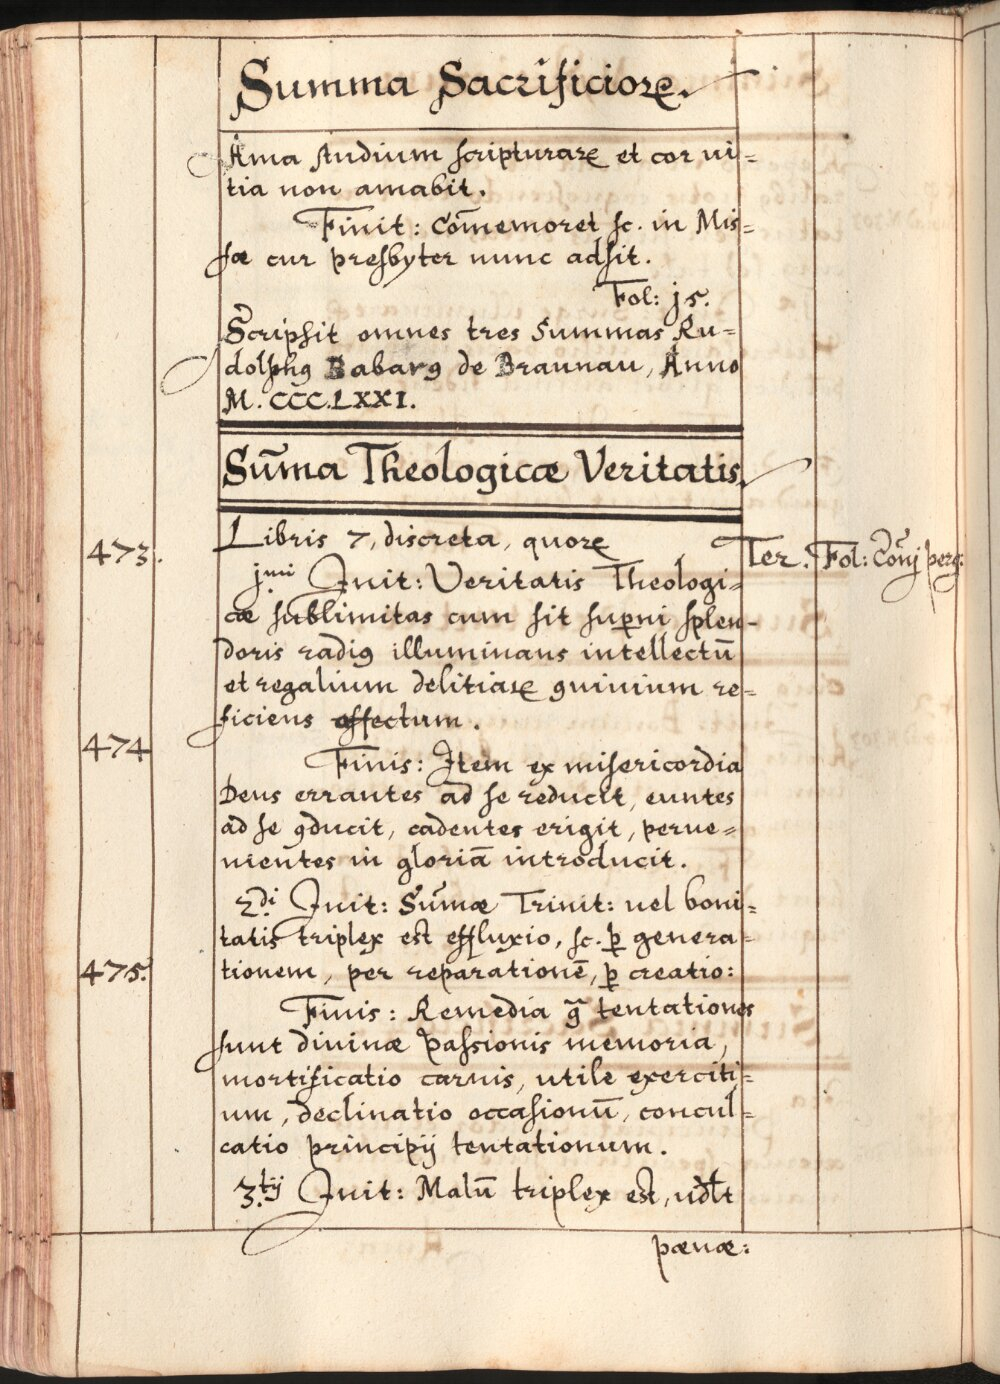 Summa Sacrificioꝝ.
Ama studium scripturaꝝ et cor vi=
tia non amabit.
Finit: Com̄emoret sc. in Mis=
sæ cur presbyter nunc adsit.
Fol: j5.
Scripsit omnes tres Summas Ru=
dolphꝯ Babarꝯ de Braunau, Anno
M. CCC.LXXI.
Sum̄a Theologicæ Veritatis.
473.
Libris 7, discreta, quoꝝ
Ter. Fol: Com̄j perg:
jmi Init: Veritatis Theologi=
cæ sublimitas cum sit suꝑni splen-
doris radiꝯ illuminans intellectū
et regalium delitiaꝝ ꝯuivium re=
ficiens affectum.
474
Finis: Item ex misericordia
Deus errantes ad se reducit, euntes
ad se ꝯducit, cadentes erigit, perve=
nientes in gloriā introducit.
2di Init: Sum̄æ Trinit: vel boni=
tatis triplex est effluxio, sc. ꝑ genera=
475.
tionem, per reparationē, ꝑ creatio:
Finis: Remedia ꝯ̄ tentationes
sunt divinæ passionis memoria,
mortificatio carnis, utile exerciti=
um, declinatio occasionū, concul=
catio principij tentationum.
3.tij Init: Malū triplex est, vdlt
pœnæ: